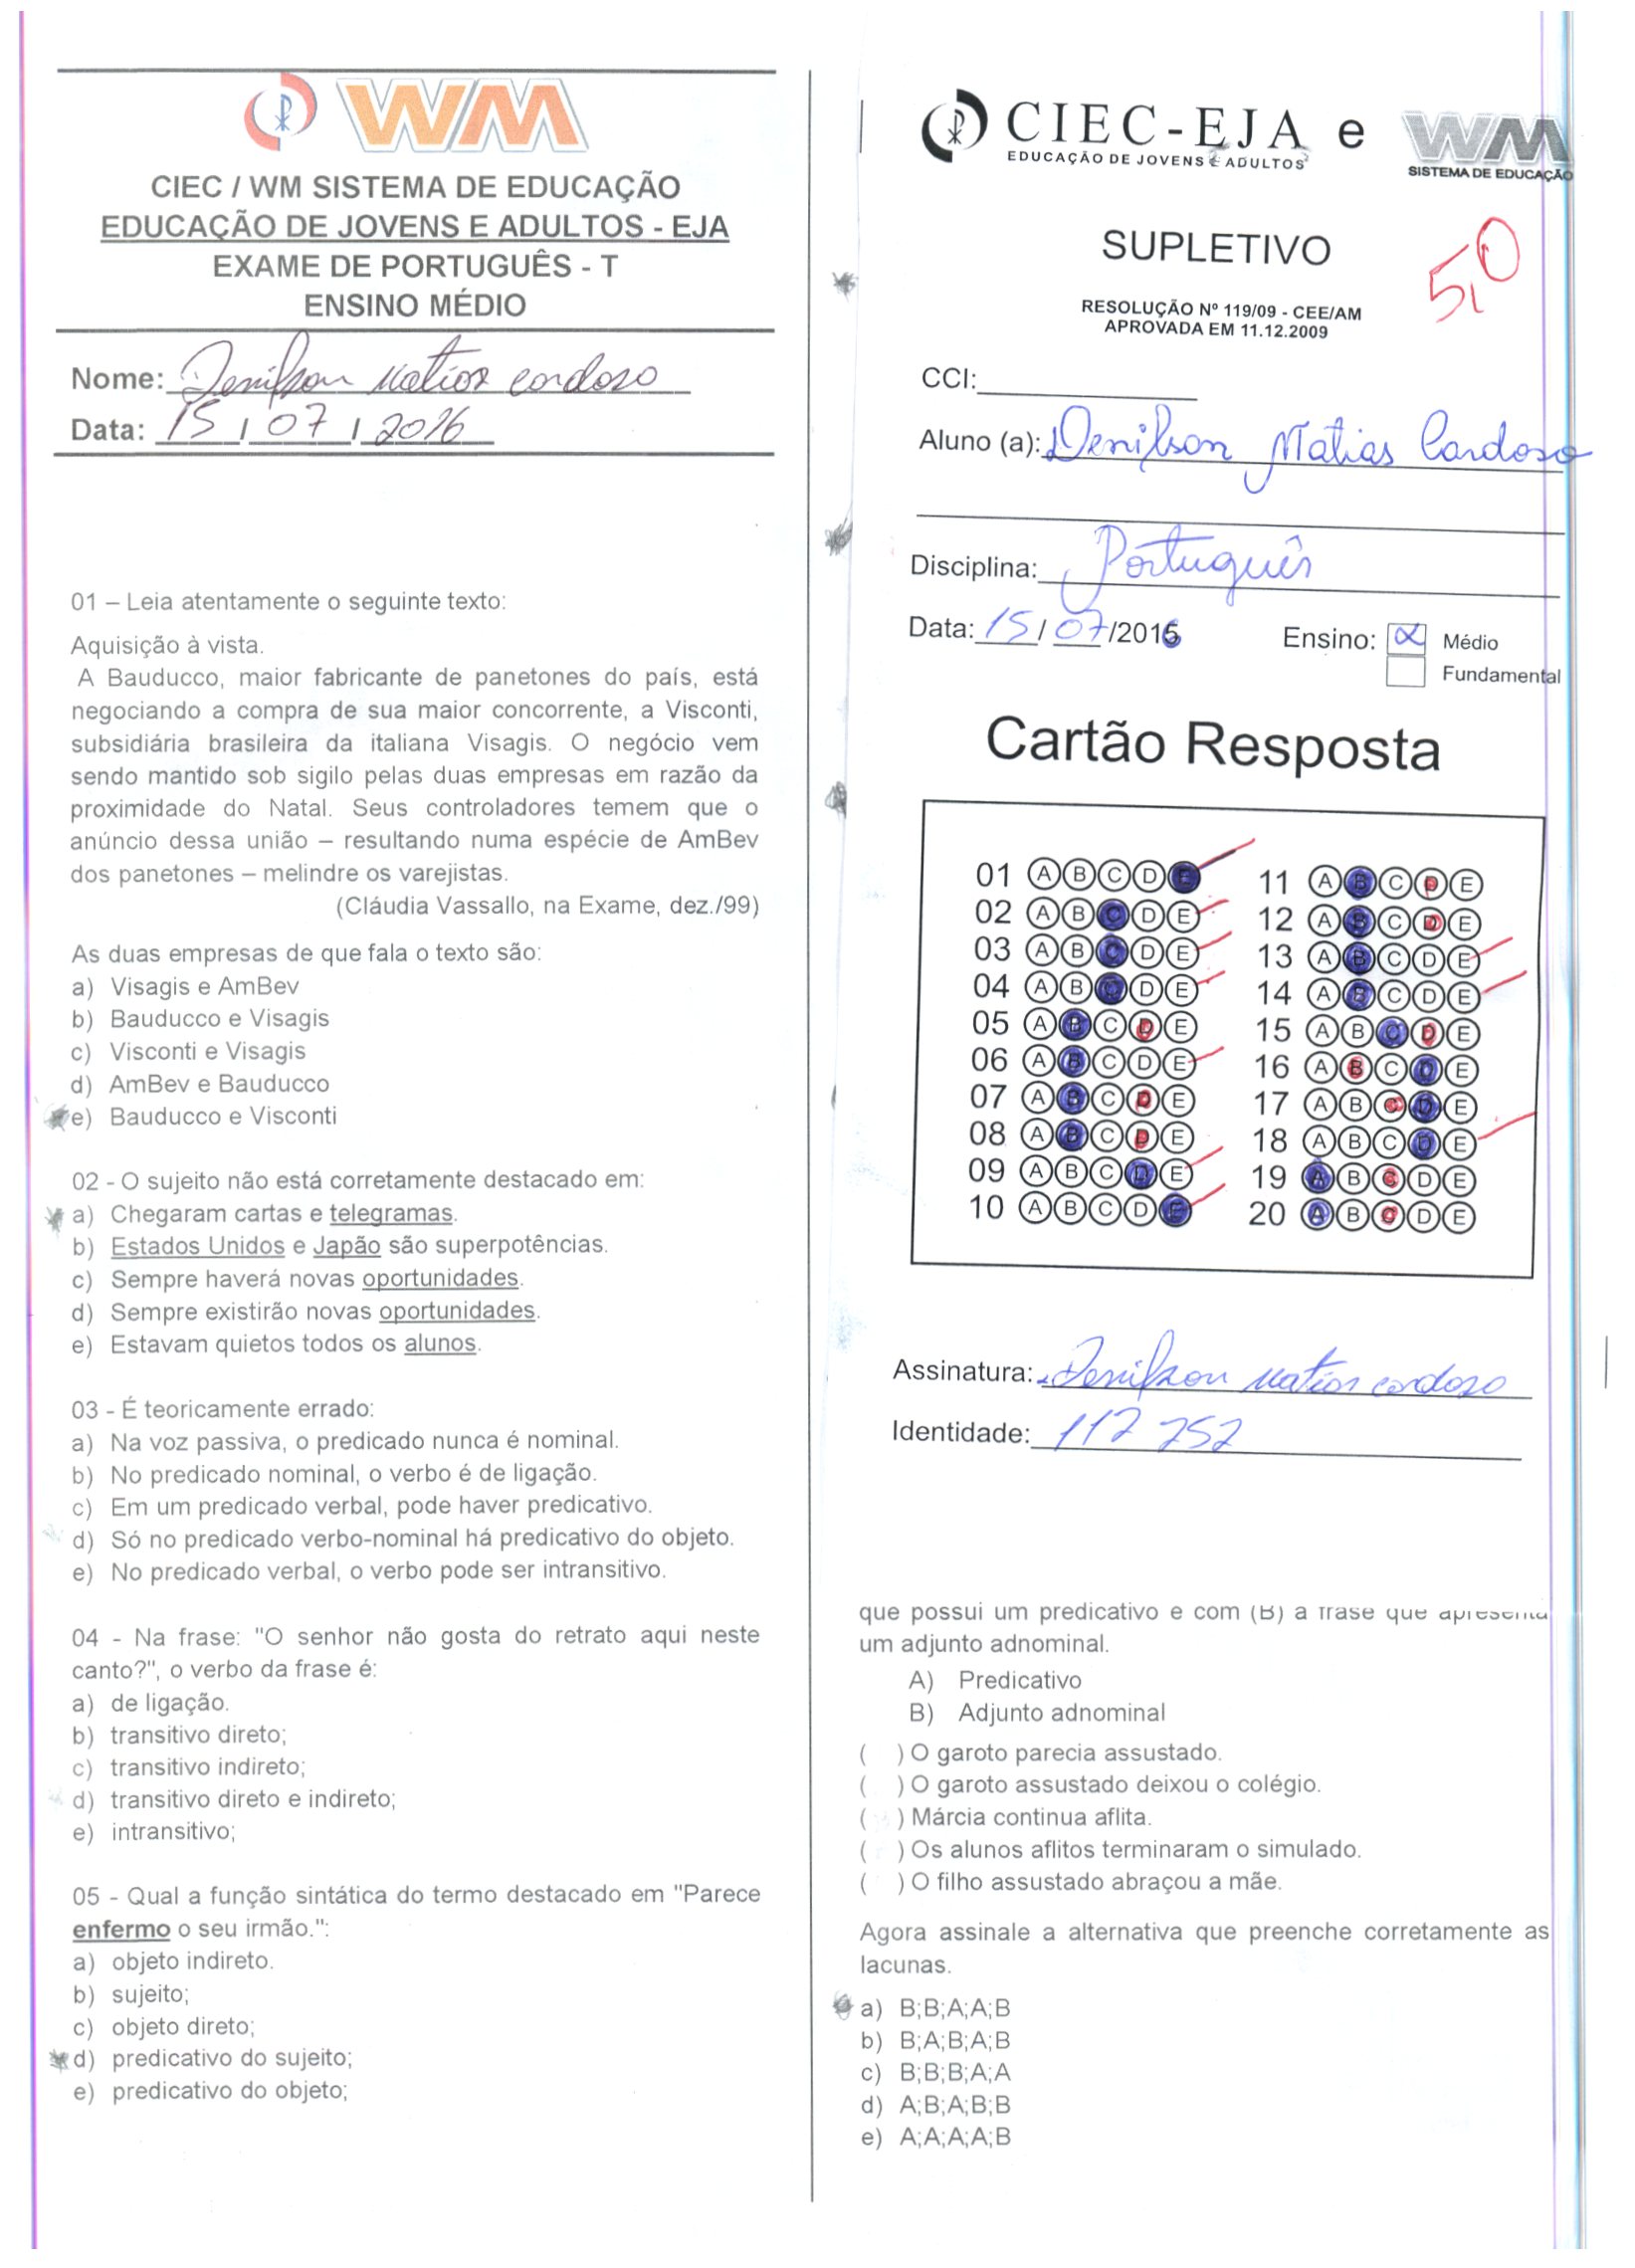 WM
CIEC / WM SISTEMA DE EDUCAÇÃO
EDUCAÇÃO DE JOVENS E ADULTOS - EJA
EXAME DE PORTUGUÊS - T
ENSINO MÉDIO
Nome: Denilson Matias Cardoso
Data: 15 / 07 / 2016
01 – Leia atentamente o seguinte texto:
Aquisição à vista.
A Bauducco, maior fabricante de panetones do país, está
negociando a compra de sua maior concorrente, a Visconti,
subsidiária brasileira da italiana Visagis. O negócio vem
sendo mantido sob sigilo pelas duas empresas em razão da
proximidade do Natal. Seus controladores temem que o
anúncio dessa união – resultando numa espécie de AmBev
dos panetones – melindre os varejistas.
(Cláudia Vassallo, na Exame, dez./99)
As duas empresas de que fala o texto são:
a) Visagis e AmBev
b) Bauducco e Visagis
c) Visconti e Visagis
d) AmBev e Bauducco
e) Bauducco e Visconti
02 - O sujeito não está corretamente destacado em:
a) Chegaram cartas e telegramas.
b) Estados Unidos e Japão são superpotências.
c) Sempre haverá novas oportunidades.
d) Sempre existirão novas oportunidades.
e) Estavam quietos todos os alunos.
03 - É teoricamente errado:
a) Na voz passiva, o predicado nunca é nominal.
b) No predicado nominal, o verbo é de ligação.
c) Em um predicado verbal, pode haver predicativo.
d) Só no predicado verbo-nominal há predicativo do objeto.
e) No predicado verbal, o verbo pode ser intransitivo.
04 - Na frase: "O senhor não gosta do retrato aqui neste
canto?", o verbo da frase é:
a) de ligação.
b) transitivo direto;
c) transitivo indireto;
d) transitivo direto e indireto;
e) intransitivo;
05 - Qual a função sintática do termo destacado em "Parece
enfermo o seu irmão.":
a) objeto indireto.
b) sujeito;
c) objeto direto;
d) predicativo do sujeito;
e) predicativo do objeto;
CIEC-EJA e WM
EDUCAÇÃO DE JOVENS E ADULTOS
SISTEMA DE EDUCAÇÃO
SUPLETIVO
5,0
RESOLUÇÃO Nº 119/09 - CEE/AM
APROVADA EM 11.12.2009
CCI:
Aluno (a): Denilson Matias Cardoso
Disciplina: Português
Data: 15 / 07 /2016 Ensino: Médio
Fundamental
Cartão Resposta
01 A B C D E 11 A B C D E
02 A B C D E 12 A B C D E
03 A B C D E 13 A B C D E
04 A B C D E 14 A B C D E
05 A B C D E 15 A B C D E
06 A B C D E 16 A B C D E
07 A B C D E 17 A B C D E
08 A B C D E 18 A B C D E
09 A B C D E 19 A B C D E
10 A B C D E 20 A B C D E
Assinatura: Denilson Matias Cardoso
Identidade: 112 752
que possui um predicativo e com (B) a frase que apresenta
um adjunto adnominal.
A) Predicativo
B) Adjunto adnominal
( ) O garoto parecia assustado.
( ) O garoto assustado deixou o colégio.
( ) Márcia continua aflita.
( ) Os alunos aflitos terminaram o simulado.
( ) O filho assustado abraçou a mãe.
Agora assinale a alternativa que preenche corretamente as
lacunas.
a) B;B;A;A;B
b) B;A;B;A;B
c) B;B;B;A;A
d) A;B;A;B;B
e) A;A;A;A;B